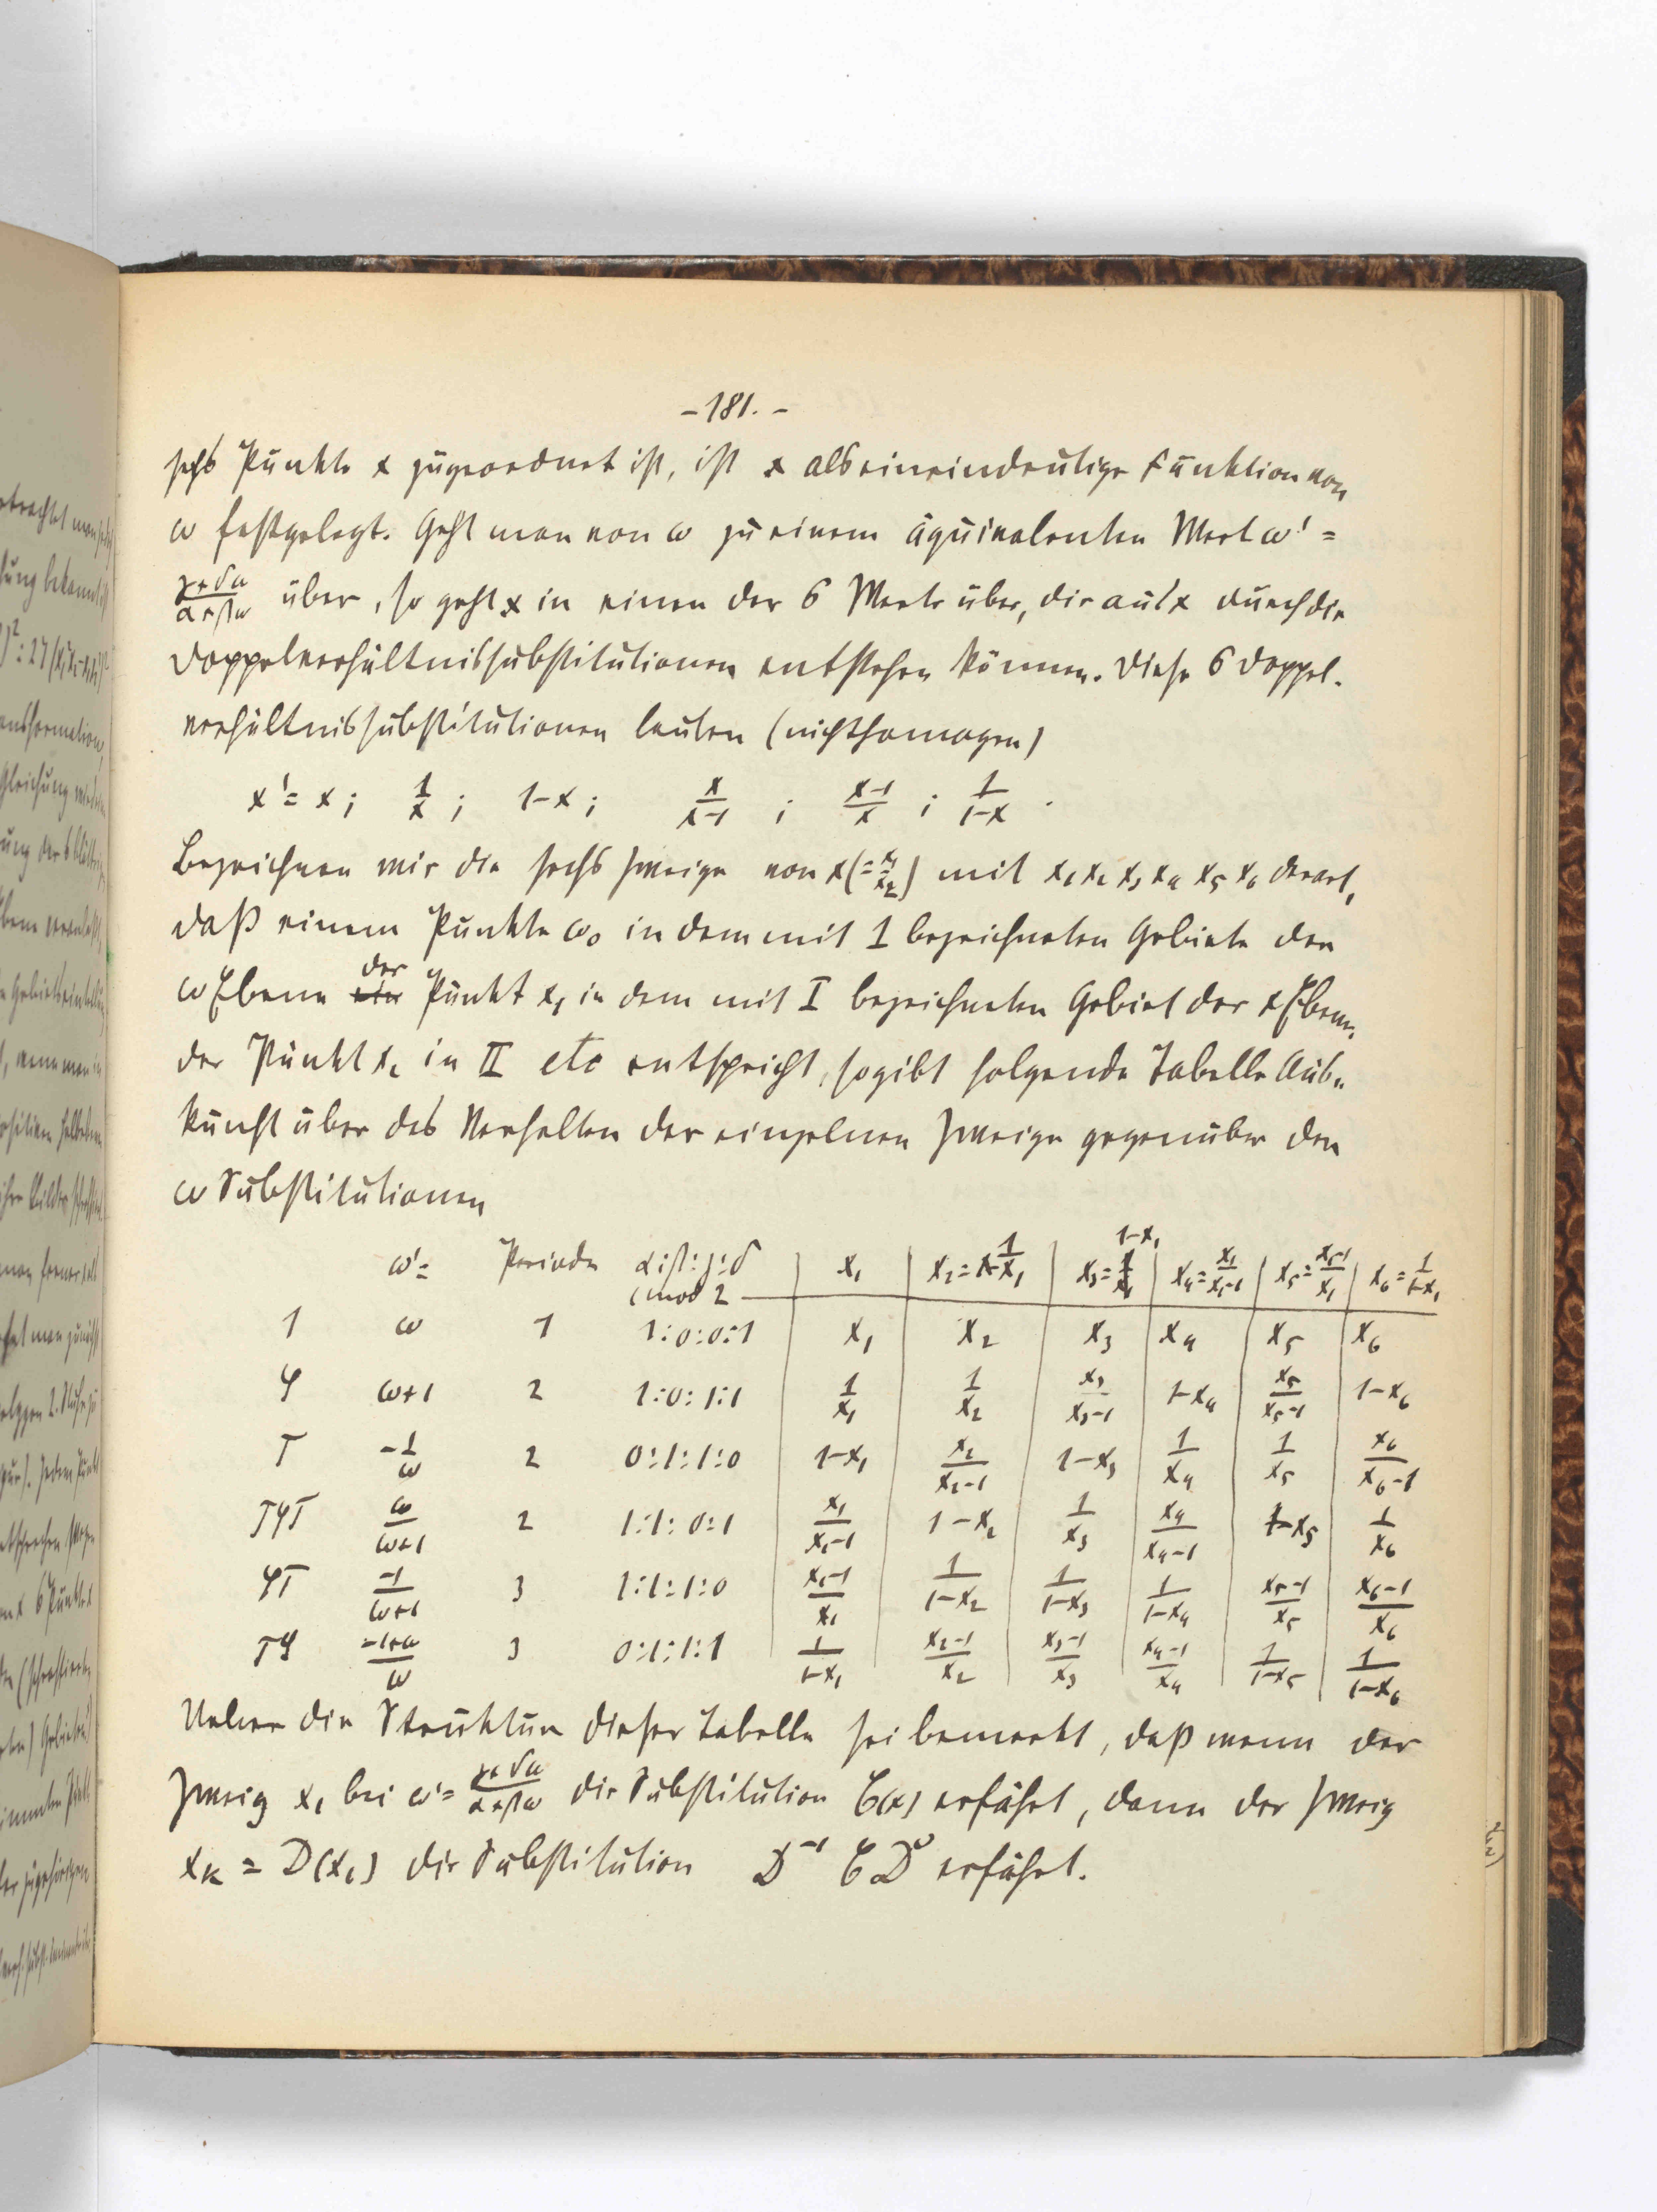 - 181. -
sechs Punkte x zugeordnet ist, ist x als eineindeutige Funktion von
ω festgelegt. Geht man von ω zu einem äquivalenten Wert ω' =
(γ+δω)/(α+βω) über, so geht x in einen der 6 Werte über, die aus x durch die
Doppelverhältnissubstitutionen entstehen können. Diese 6 Doppel-
verhältnissubstitutionen lauten (nichthomogen)
x' = x ; 1/x ; 1-x ; x/(x-1) ; (x-1)/x ; 1/(1-x) .
Bezeichnen wir die sechs Zweige von x (= x₁/x₂) mit x₁ x₂ x₃ x₄ x₅ x₆ derart,
daß einem Punkte ω₀ in dem mit 1 bezeichneten Gebiete der
ω Ebene der Punkt x₁ in dem mit I bezeichneten Gebiet der x Ebene,
der Punkt x₂ in II etc entspricht, so gibt folgende Tabelle Aus-
kunft über das Verhalten der einzelnen Zweige gegenüber den
ω Substitutionen
ω' = Periode α:β:γ:δ (mod 2 x₁ x₂ = 1/x₁ x₃ = 1-x₁ x₄ = x₁/(x₁-1) x₅ = (x₁-1)/x₁ x₆ = 1/(1-x₁)
1 ω 1 1:0:0:1 x₁ x₂ x₃ x₄ x₅ x₆
S ω+1 2 1:0:1:1 1/x₁ 1/x₂ x₃/(x₃-1) 1-x₄ x₅/(x₅-1) 1-x₆
T -1/ω 2 0:1:1:0 1-x₁ x₂/(x₂-1) 1-x₃ 1/x₄ 1/x₅ x₆/(x₆-1)
TST ω/(ω+1) 2 1:1:0:1 x₁/(x₁-1) 1-x₂ 1/x₃ x₄/(x₄-1) 1-x₅ 1/x₆
ST -1/(ω+1) 3 1:1:1:0 (x₁-1)/x₁ 1/(1-x₂) 1/(1-x₃) 1/(1-x₄) (x₅-1)/x₅ (x₆-1)/x₆
TS (-1+ω)/ω 3 0:1:1:1 1/(1-x₁) (x₂-1)/x₂ (x₃-1)/x₃ (x₄-1)/x₄ 1/(1-x₅) 1/(1-x₆)
Ueber die Struktur dieser Tabelle sei bemerkt, daß wenn der
Zweig x₁ bei ω' = (γ+δω)/(α+βω) die Substitution C(x) erfährt, dann der Zweig
xₖ = D(x₁) die Substitution D⁻¹ C D erfährt.